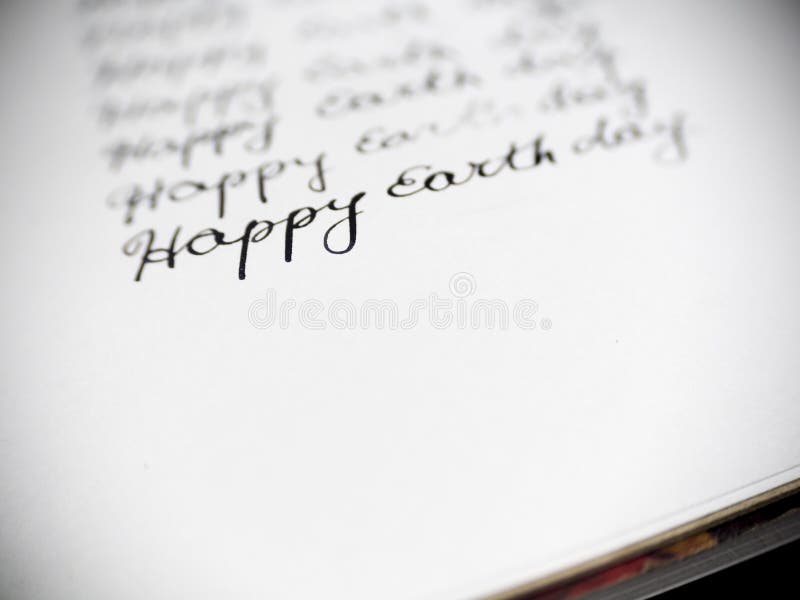 Happy
Happy Earth day
Happy Earth day
Happy Earth day
Happy Earth day
Happy Earth day
dreamstime.